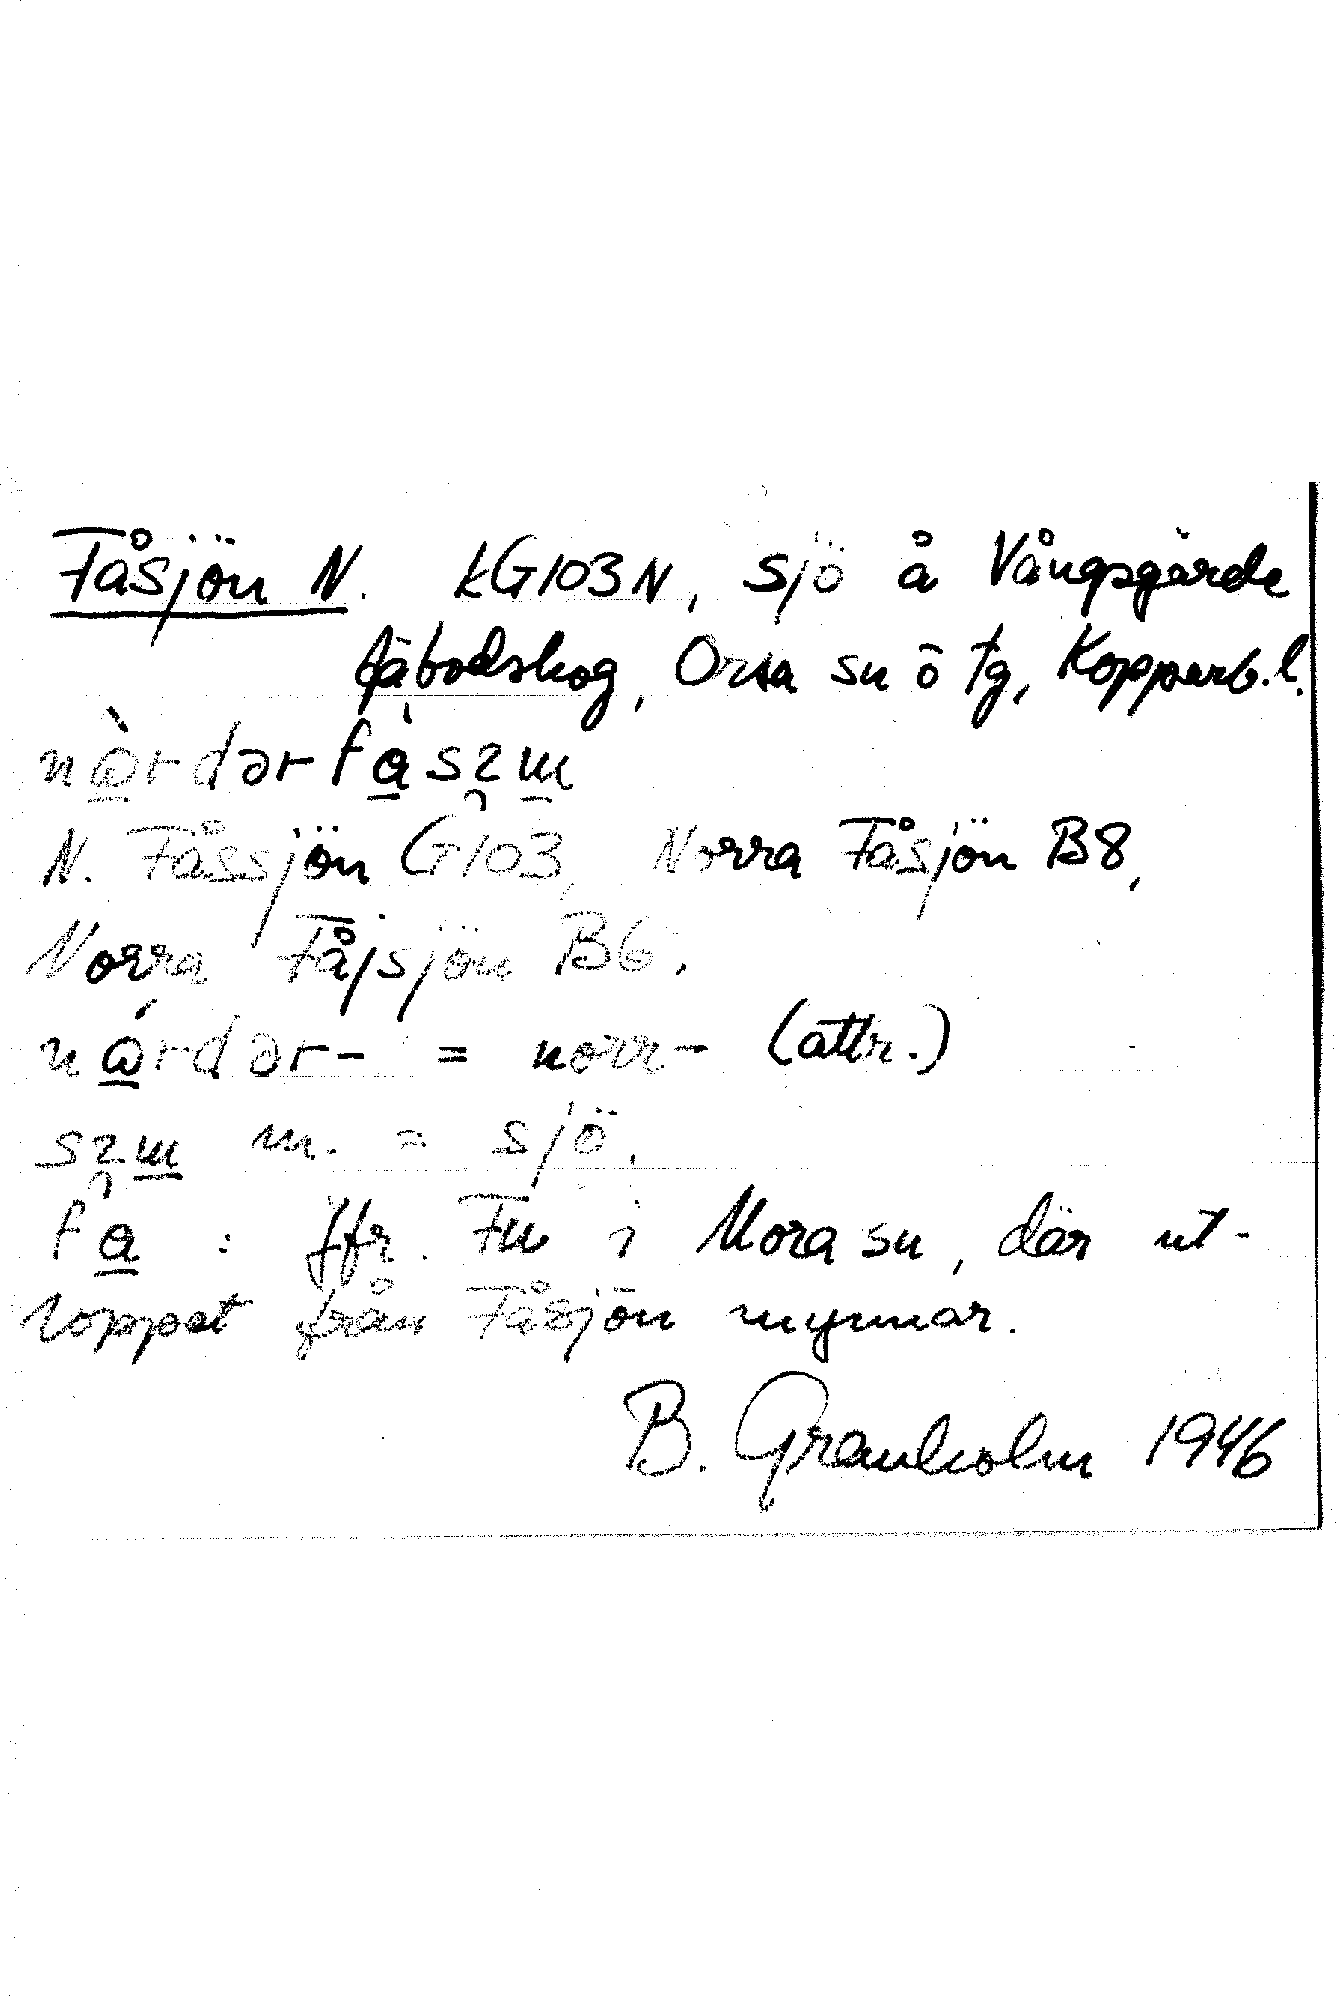 Fåsjön N. kG103N, sjö å Vångsgärde
fäbodskog, Orsa sn ö tg, Kopparb.l.
N. Fåssjön G103, Norra Fåsjön B8,
Norra Fåjsjön B6.
= norr- (attr.)
m. = sjö.
: Jfr. Fu i Mora sn, där ut-
loppet från Fåsjön mynnar.
B. Granholm 1946